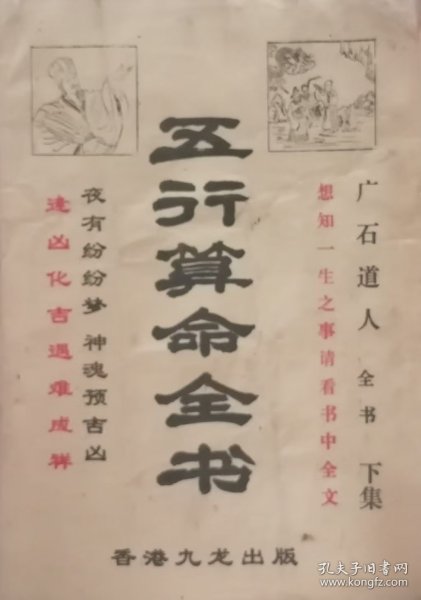 广石道人 全书 下集
想知一生之事请看书中全文
五行算命全书
夜有纷纷梦 神魂预吉凶
逢凶化吉遇难成祥
香港九龙出版
孔夫子旧书网
www.kongfz.com